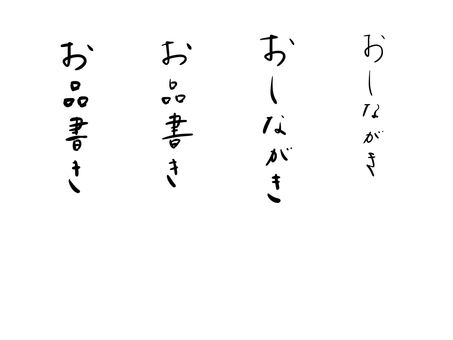 おしながき
おしながき
お品書き
お品書き